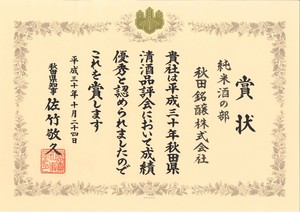 賞状
純米酒の部
秋田銘醸株式会社
貴社は平成三十年秋田県
清酒品評会において成績
優秀と認められましたので
これを賞します
平成三十年十月二十四日
秋田県知事 佐竹敬久